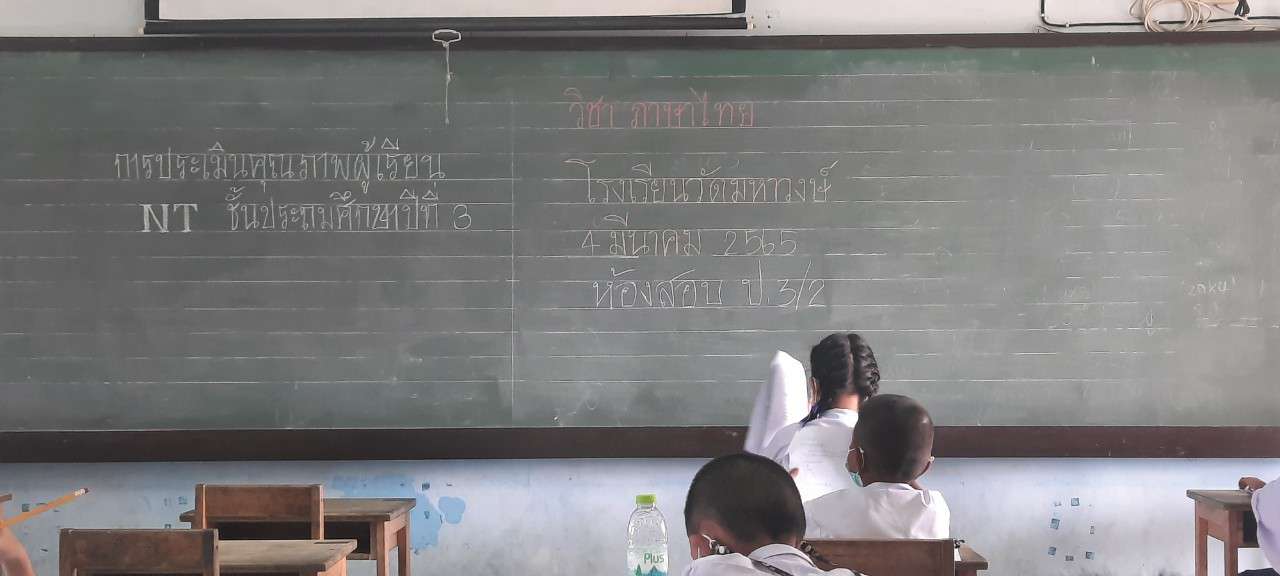 การประเมินคุณภาพผู้เรียน
NT ชั้นประถมศึกษาปีที่ 3
วิชา ภาษาไทย
โรงเรียนวัดมหาวงษ์
4 มีนาคม 2565
ห้องสอบ ป.3/2
Plus